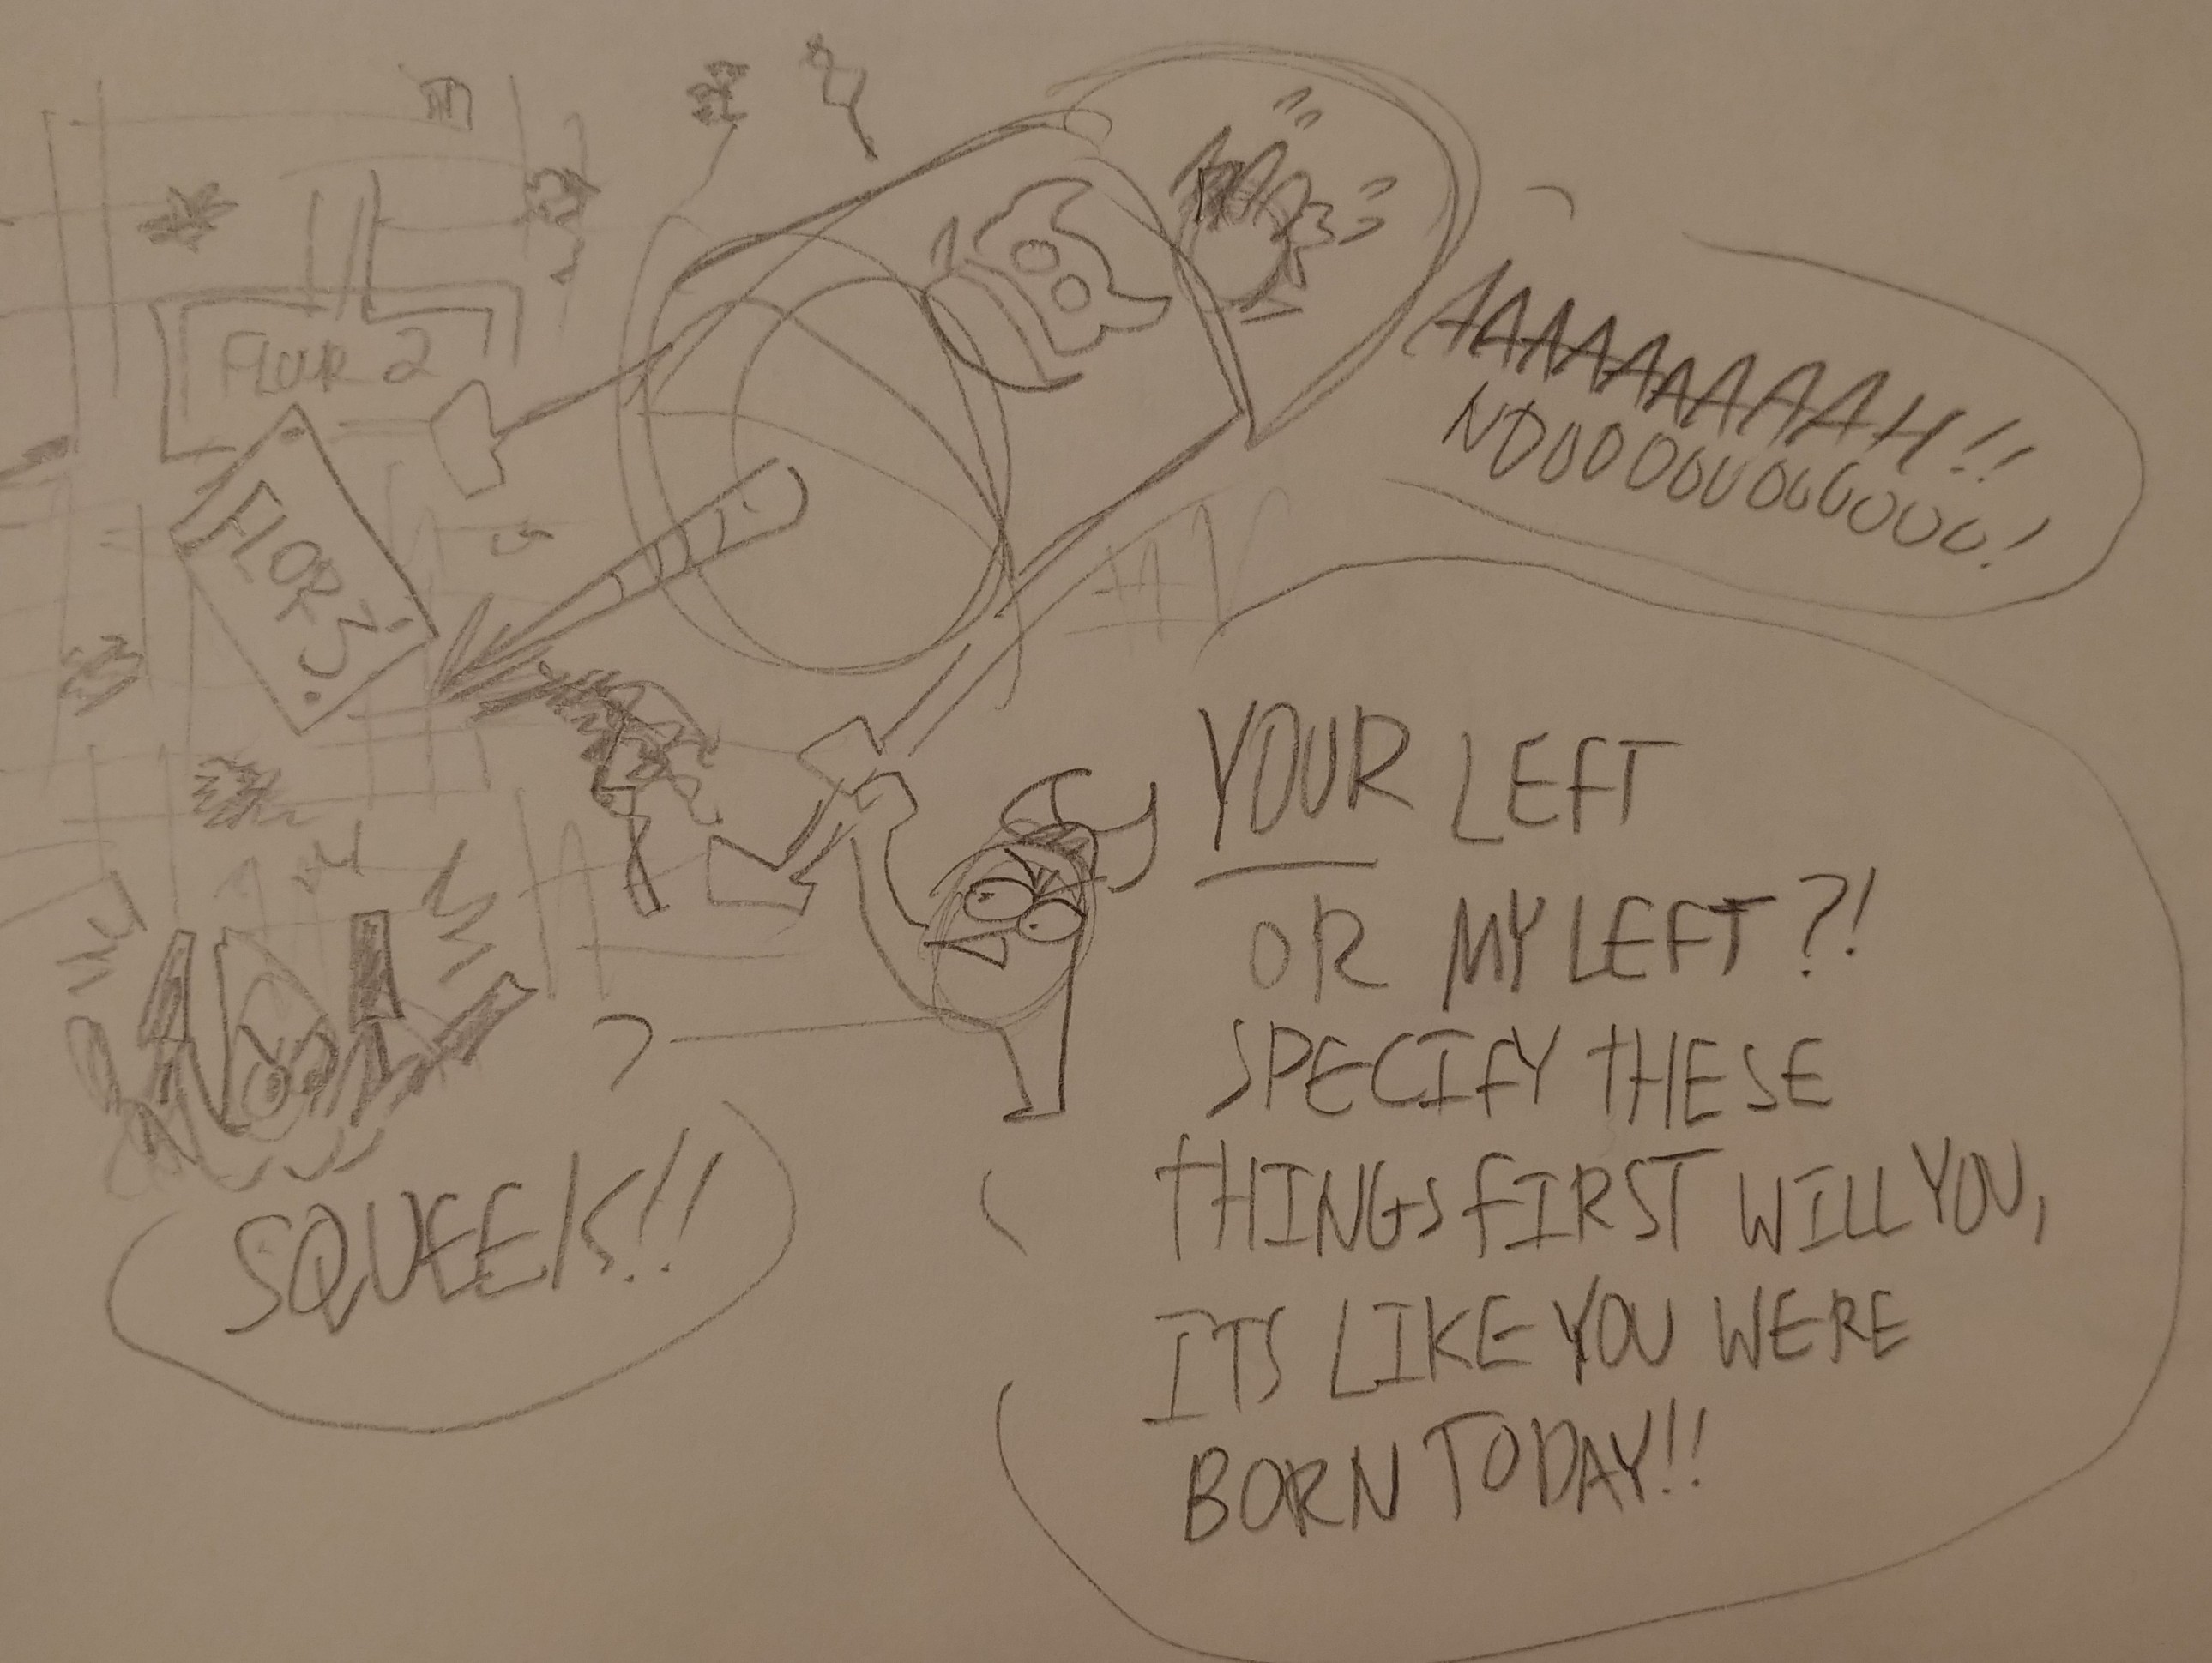 FLUUR 2
FLOR 3
AAAAAAAAAAH!!
NOOOOOOOOOOOO!
YOUR LEFT
OR MY LEFT?!
SPECIFY THESE
THINGS FIRST WILL YOU,
ITS LIKE YOU WERE
BORN TODAY!!
SQUEEK!!